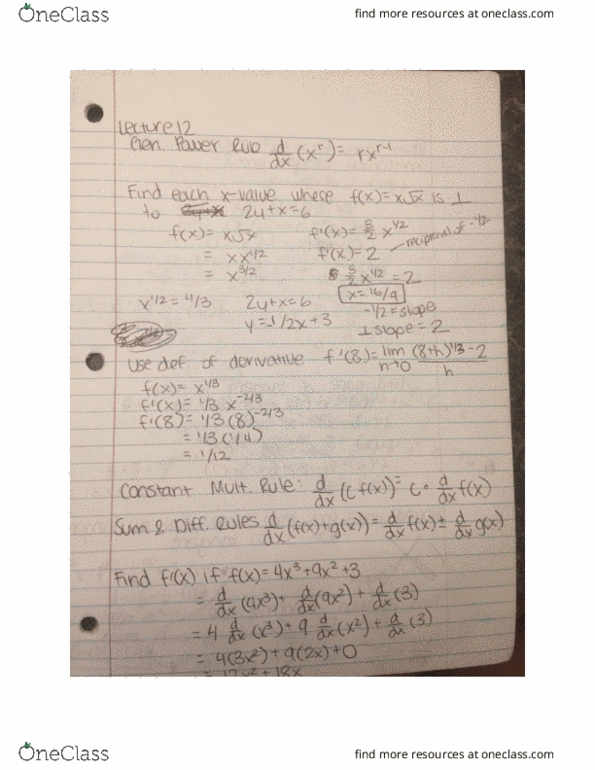 OneClass
find more resources at oneclass.com
Lecture 12
Gen. Power Rule d/dx (x^r) = rx^(r-1)
Find each x-value where f(x)=x√x is ⊥
to 2y+x=6
f(x)= x√x f'(x)= 3/2 x^1/2
= xx^1/2 f'(x)= 2 reciprocal of -1/2
= x^3/2 3/2 x^1/2 = 2
x^1/2 = 4/3 2y+x=6 x=16/9
-1/2 = slope
y=-1/2x+3 ⊥ slope = 2
Use def. of derivative f'(8)= lim h→0 ((8+h)^1/3 - 2)/h
f(x)= x^1/3
f'(x)= 1/3 x^-2/3
f'(8)= 1/3 (8)^-2/3
= 1/3 (1/4)
= 1/12
Constant Mult. Rule: d/dx (c f(x)) = c · d/dx f(x)
Sum & Diff. Rules d/dx (f(x)±g(x)) = d/dx f(x) ± d/dx g(x)
Find f'(x) if f(x)= 4x^3+9x^2+3
= d/dx (4x^3) + d/dx (9x^2) + d/dx (3)
= 4 d/dx (x^3) + 9 d/dx (x^2) + d/dx (3)
= 4(3x^2)+9(2x)+0
= 12x^2 + 18x
OneClass
find more resources at oneclass.com